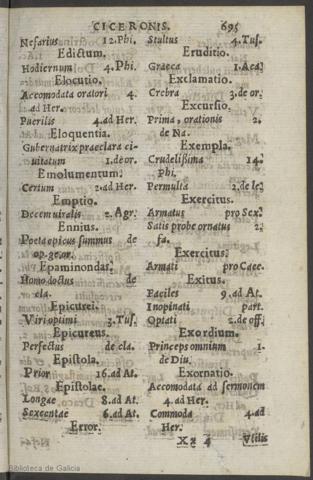 CICERONIS. 695
Nefarius 12.Phi.
Edictum.
Hodiernum 4.Phi.
Elocutio.
Accomodata oratori 4.
ad Her.
Puerilis 4.ad Her.
Eloquentia.
Gubernatrix praeclara ci-
uitatum 1.de or.
Emolumentum.
Certum 2.ad Her.
Emptio.
Decemuiralis 2. Agr.
Ennius.
Poeta epicus summus de
op.ge.or.
Epaminondas.
Homo doctus de
cla.
Epicurei.
Viri optimi 3. Tus.
Epicureus.
Perfectus de cla.
Epistola.
Prior 16.ad At.
Epistolae.
Longae 8.ad At.
Sexcentae 6.ad At.
Error.
Stultus 4.Tus.
Eruditio.
Graeca 1.Aca.
Exclamatio.
Crebra 3.de or.
Excursio.
Prima, orationis 2.
de Na.
Exempla.
Crudelißima 14.
Phi.
Permulta 2.de le.
Exercitus.
Armatus pro Sex.
Satis probe ornatus 2.
fa.
Exercitus.
Armati pro Caec.
Exitus.
Faciles 9.ad At.
Inopinati part.
Optati 2.de off.
Exordium.
Princeps omnium 1.
de Diu.
Exornatio.
Accomodata ad sermonem
4.ad Her.
Commoda 4.ad
Her.
Xx 4 Vtilis
Biblioteca de Galicia